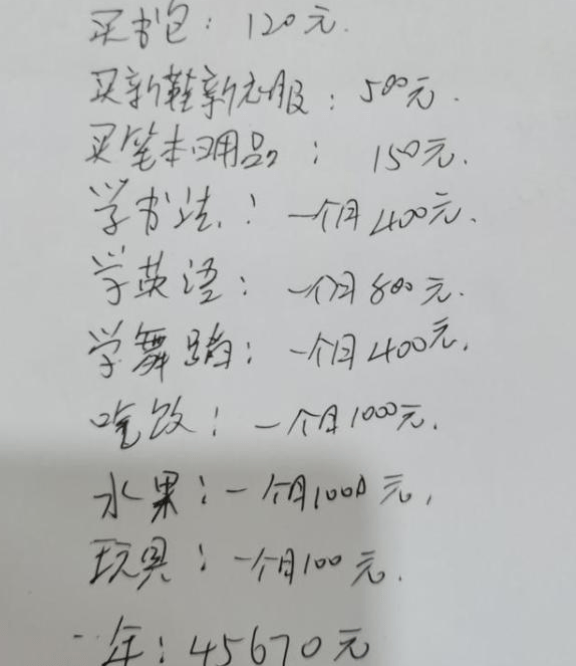 买书包：120元.
买新鞋新衣服：500元.
买笔本日用品：150元.
学书法：一个月400元.
学英语：一个月800元.
学舞蹈：一个月400元.
吃饭：一个月1000元.
水果：一个月1000元.
玩具：一个月100元.
一年：45670元